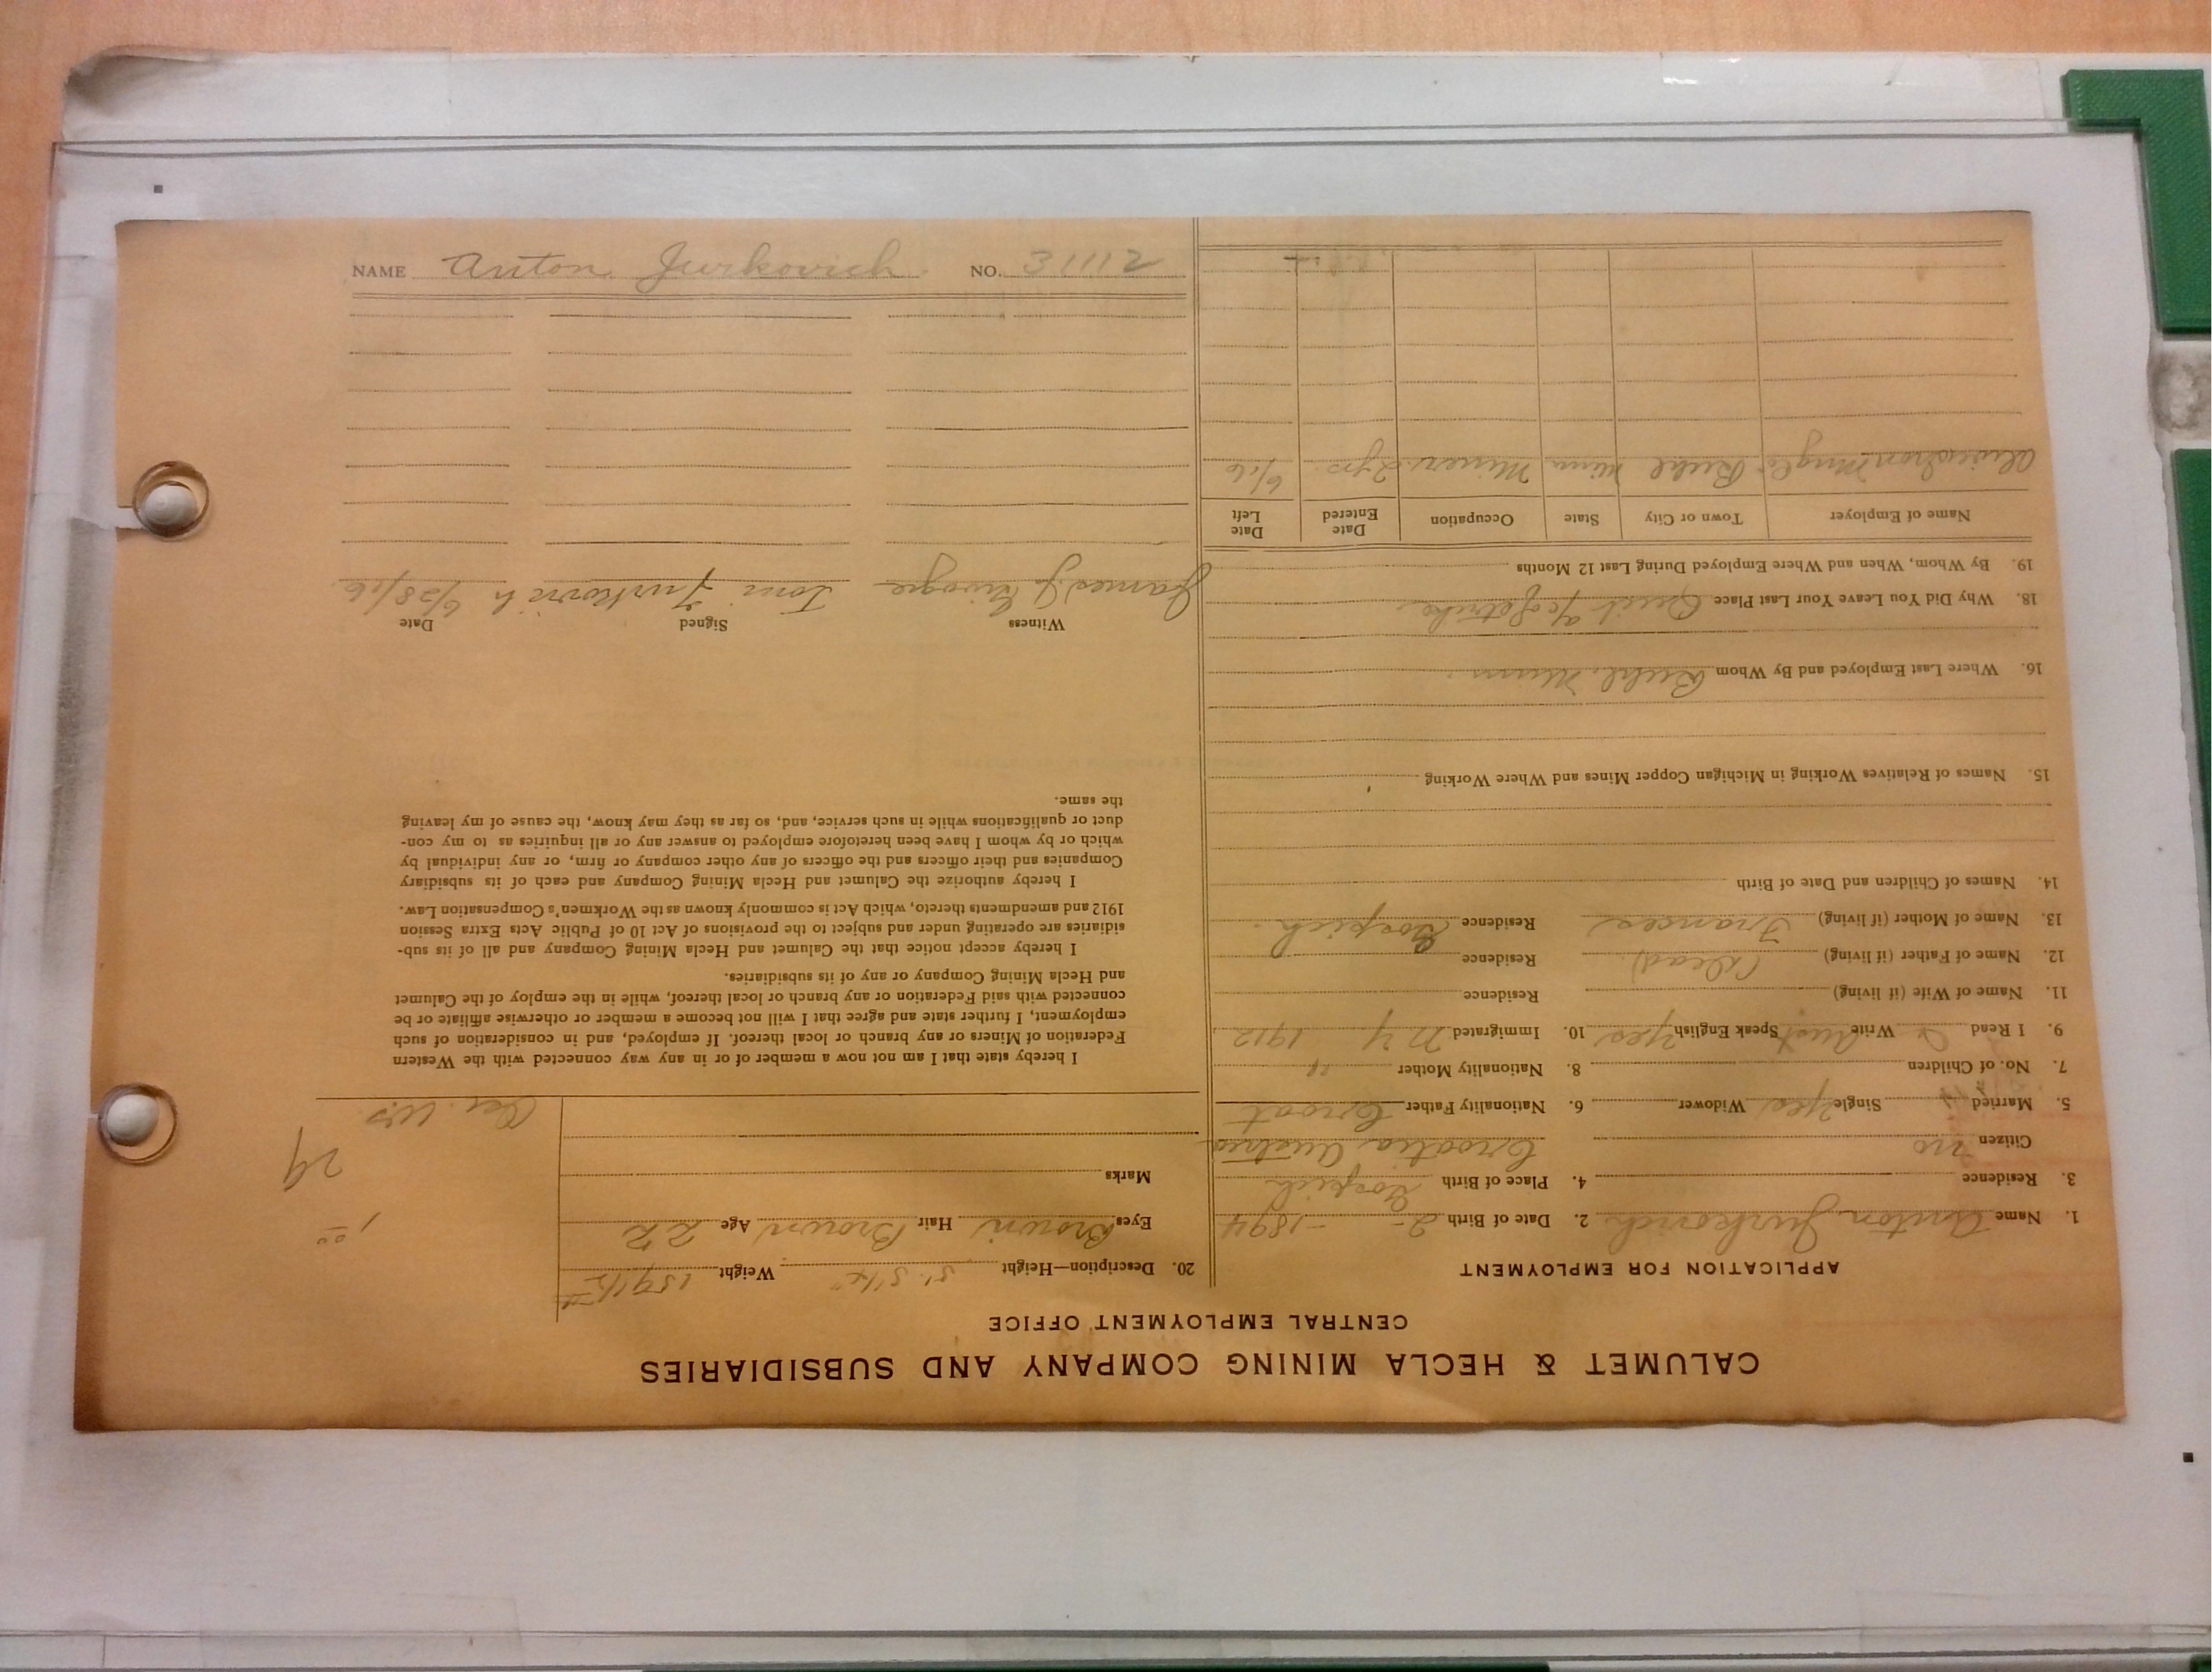 CALUMET & HECLA MINING COMPANY AND SUBSIDIARIES
CENTRAL EMPLOYMENT OFFICE
APPLICATION FOR EMPLOYMENT
1. Name Anton Jurkovich 2. Date of Birth 2- -1894
3. Residence 4. Place of Birth Gospich
Citizen no Croatia Austria
5. Married Single Yes Widower 6. Nationality Father Croat
7. No. of Children 8. Nationality Mother "
9. I Read Write Aust Speak English Yes 10. Immigrated N Y 1912
11. Name of Wife (if living) Residence
12. Name of Father (if living) (Dead) Residence
13. Name of Mother (if living) Frances Residence Gospich
14. Names of Children and Date of Birth
15. Names of Relatives Working in Michigan Copper Mines and Where Working
16. Where Last Employed and By Whom Buhl, Minn
18. Why Did You Leave Your Last Place Quit
19. By Whom, When and Where Employed During Last 12 Months
Name of Employer Town or City State Occupation Date Entered Date Left
Buhl Minn Miner 2 yrs 6/16
20. Description—Height 5' Weight 159 1/2 #
Eyes Brown Hair Brown Age 22
Marks
1.00
29
I hereby state that I am not now a member of or in any way connected with the Western
Federation of Miners or any branch or local thereof. If employed, and in consideration of such
employment, I further state and agree that I will not become a member or otherwise affiliate or be
connected with said Federation or any branch or local thereof, while in the employ of the Calumet
and Hecla Mining Company or any of its subsidiaries.
I hereby accept notice that the Calumet and Hecla Mining Company and all of its sub-
sidiaries are operating under and subject to the provisions of Act 10 of Public Acts Extra Session
1912 and amendments thereto, which Act is commonly known as the Workmen's Compensation Law.
I hereby authorize the Calumet and Hecla Mining Company and each of its subsidiary
Companies and their officers and the officers of any other company or firm, or any individual by
which or by whom I have been heretofore employed to answer any or all inquiries as to my con-
duct or qualifications while in such service, and, so far as they may know, the cause of my leaving
the same.
Witness Signed Date
James J. Toni Jurkovich 6/28/16
NAME Anton Jurkovich NO. 31112